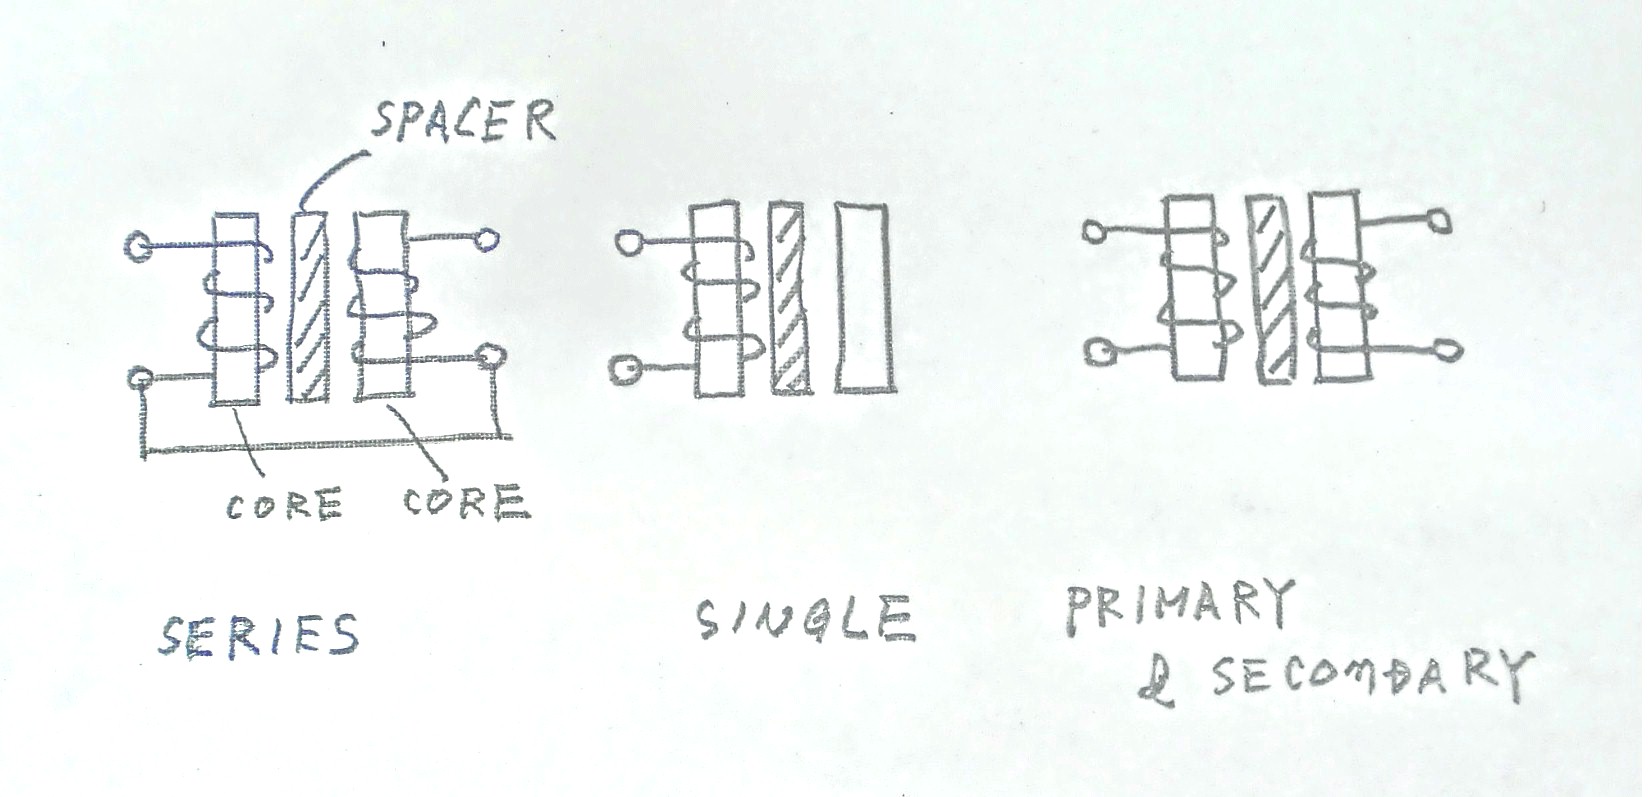 SPACER
CORE CORE
SERIES
SINGLE
PRIMARY
& SECONDARY